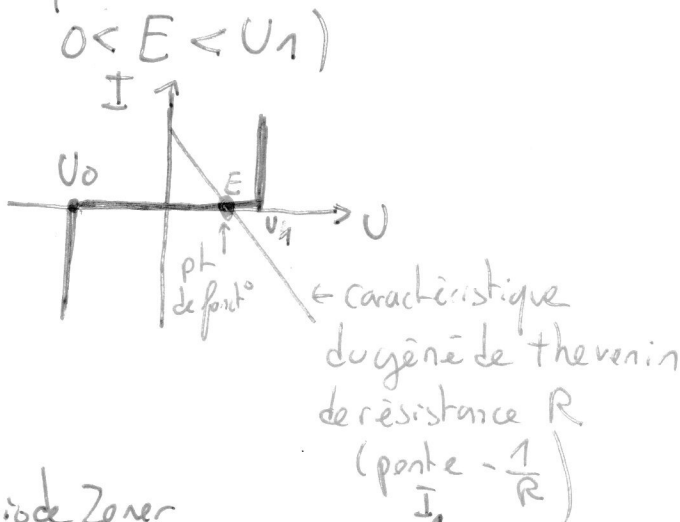 0 < E < U1)
I
U0
E
U1
U
pt
de fonct°
← caractéristique
du géné de thevenin
de résistance R
(pente - 1/R)
I
iode Zener